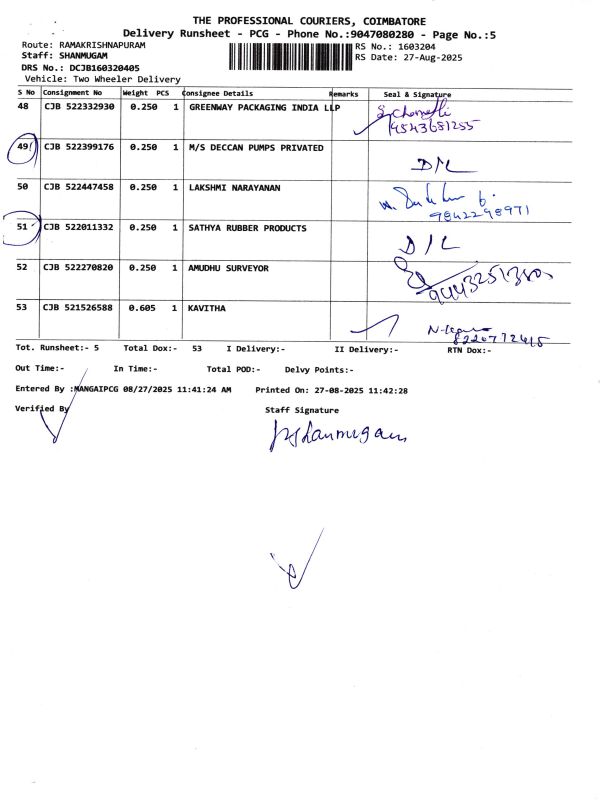 THE PROFESSIONAL COURIERS, COIMBATORE
Delivery Runsheet - PCG - Phone No.:9047080280 - Page No.:5
Route: RAMAKRISHNAPURAM
RS No.: 1603204
Staff: SHANMUGAM
RS Date: 27-Aug-2025
DRS No.: DCJB160320405
Vehicle: Two Wheeler Delivery
S No Consignment No Weight PCS Consignee Details Remarks Seal & Signature
48 CJB 522332930 0.250 1 GREENWAY PACKAGING INDIA LLP
9543681255
49 CJB 522399176 0.250 1 M/S DECCAN PUMPS PRIVATED
D/L
50 CJB 522447458 0.250 1 LAKSHMI NARAYANAN
9842298971
51 CJB 522011332 0.250 1 SATHYA RUBBER PRODUCTS
D/L
52 CJB 522270820 0.250 1 AMUDHU SURVEYOR
53 CJB 521526588 0.605 1 KAVITHA
Tot. Runsheet:- 5 Total Dox:- 53 I Delivery:- II Delivery:- RTN Dox:-
Out Time:- In Time:- Total POD:- Delvy Points:-
Entered By :MANGAIPCG 08/27/2025 11:41:24 AM Printed On: 27-08-2025 11:42:28
Verified By Staff Signature
Shanmugam